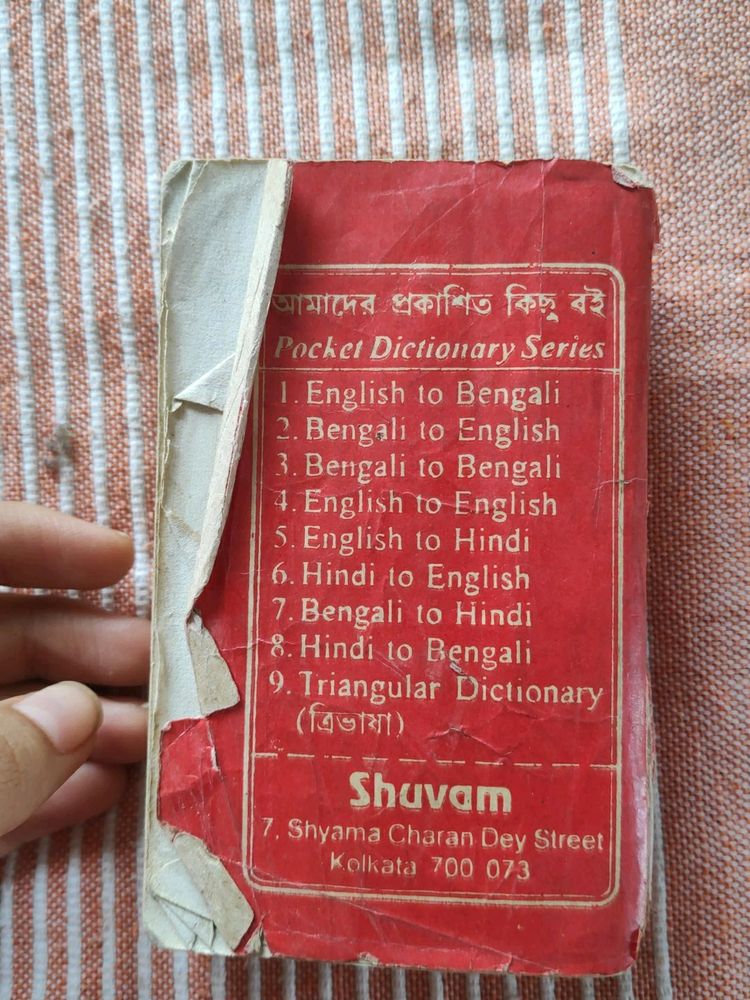 আমাদের প্রকাশিত কিছু বই
Pocket Dictionary Series
1. English to Bengali
2. Bengali to English
3. Bengali to Bengali
4. English to English
5. English to Hindi
6. Hindi to English
7. Bengali to Hindi
8. Hindi to Bengali
9. Triangular Dictionary
(ত্রিভাষা)
Shuvam
7, Shyama Charan Dey Street
Kolkata 700 073